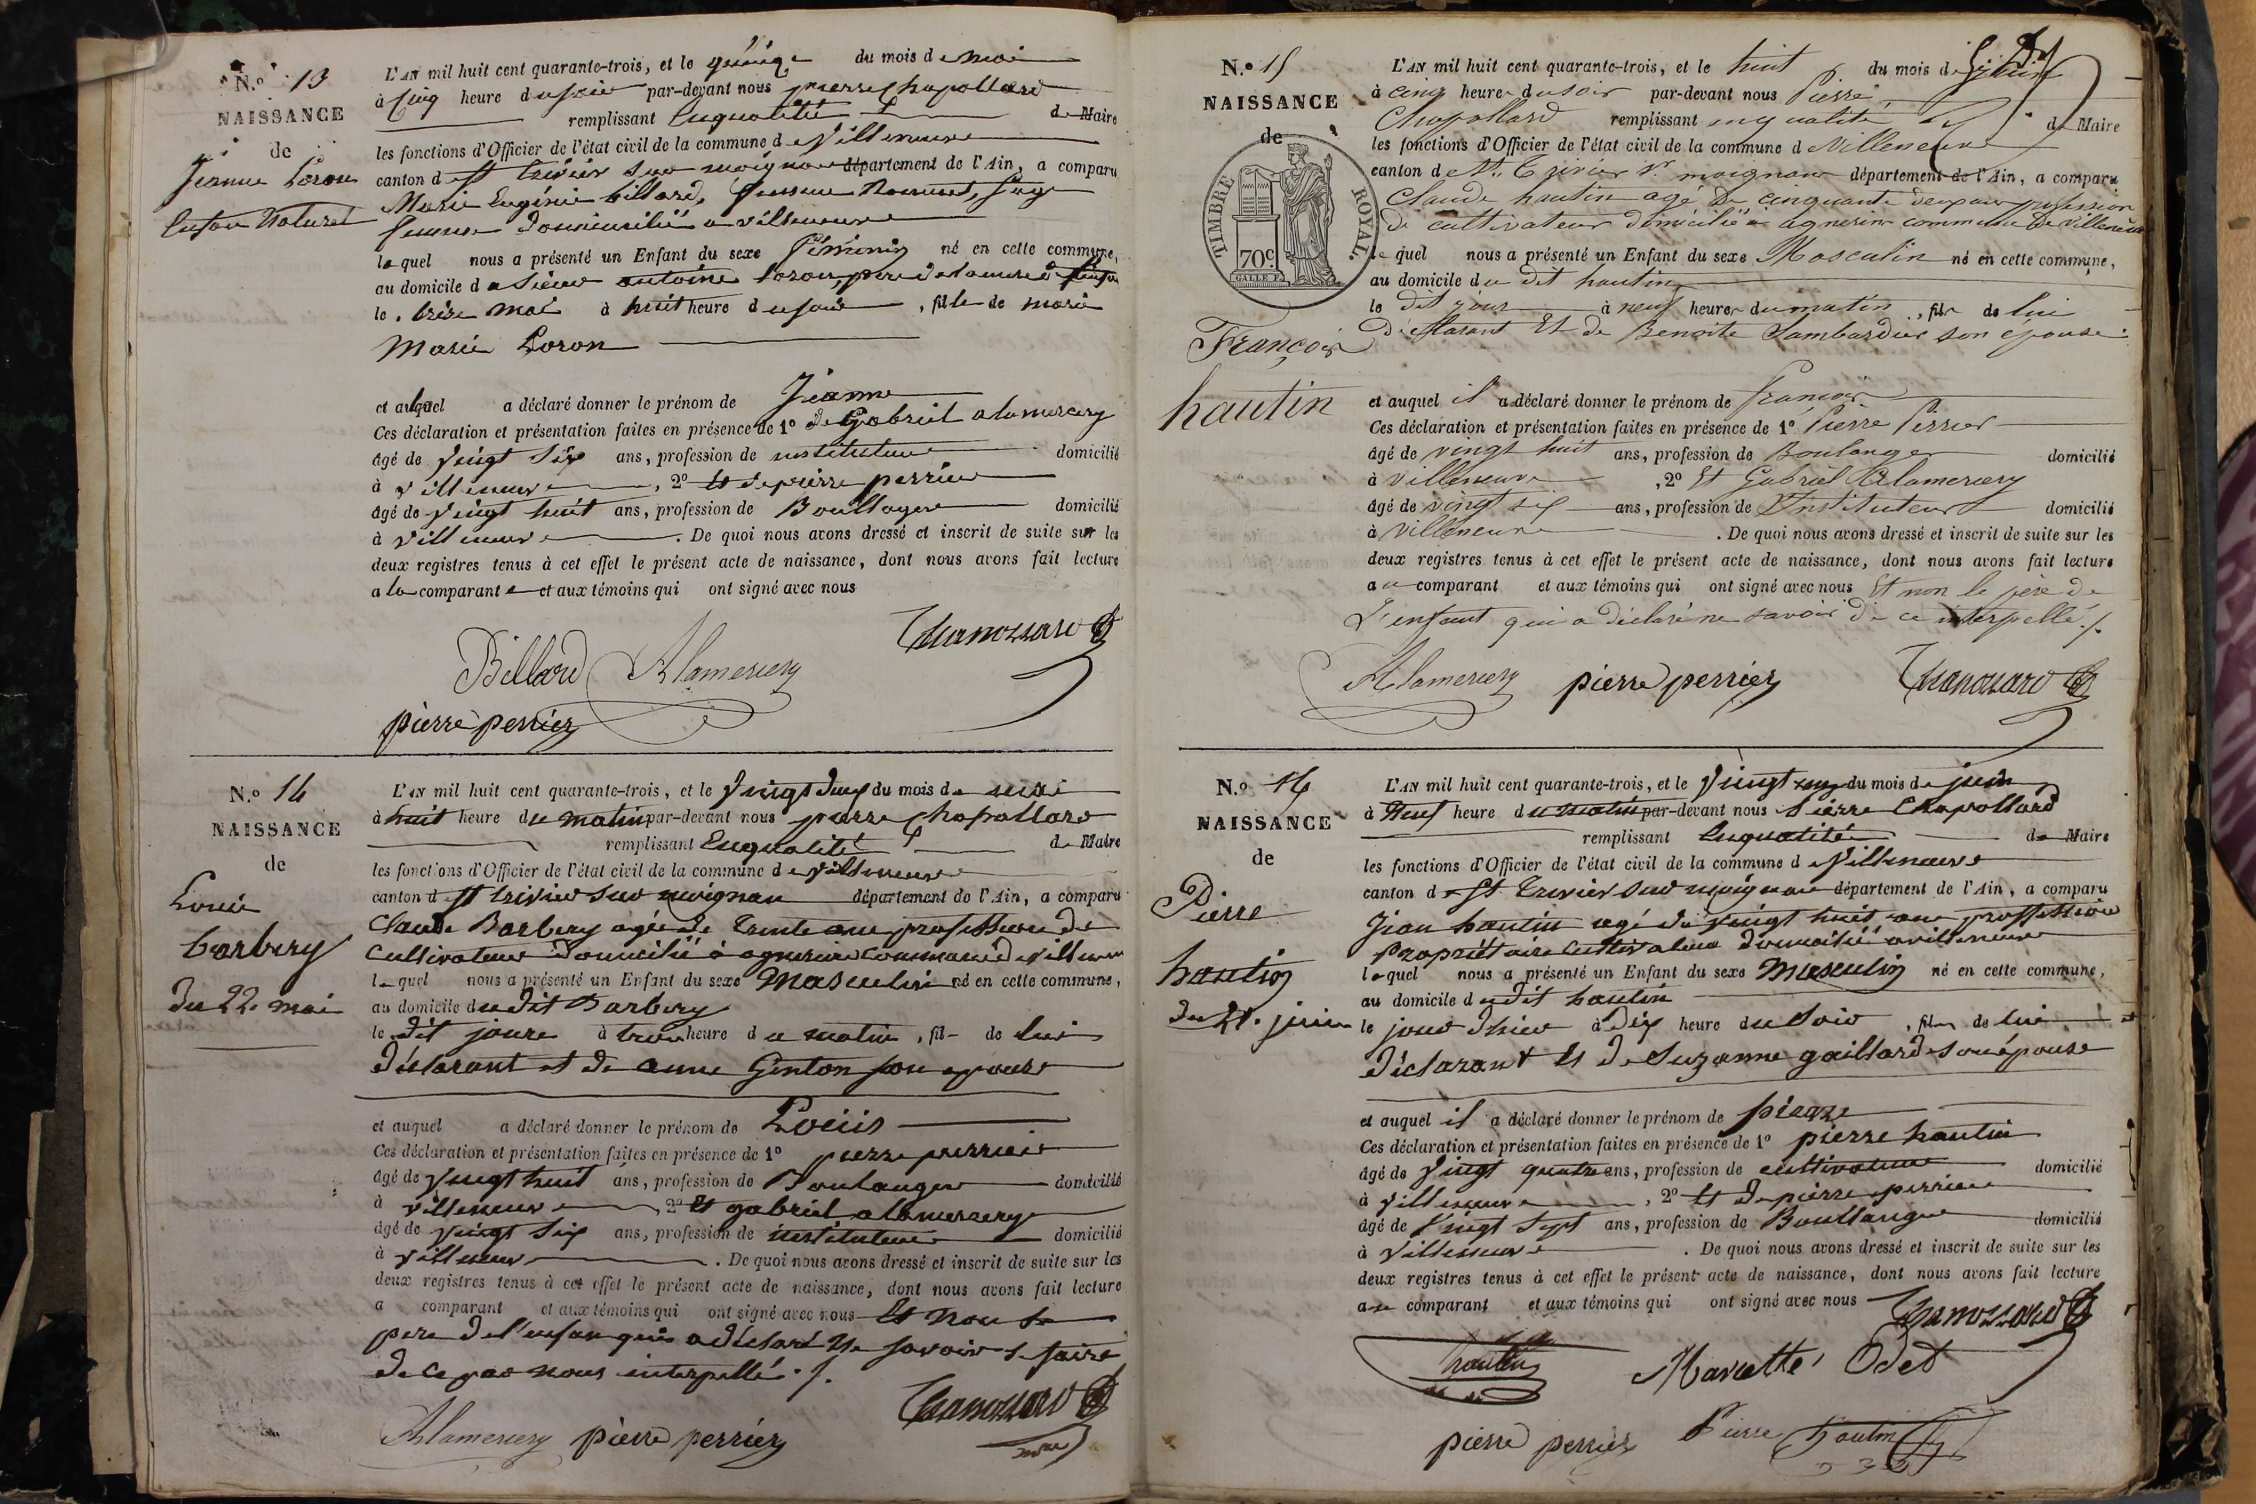 N.º 13
NAISSANCE
de
Jeanne Loron
Enfant Naturel
L'AN mil huit cent quarante-trois, et le quinze du mois de mai
à Cinq heure du soir par-devant nous pierre Chapollard
remplissant En qualité de Maire
les fonctions d'Officier de l'état civil de la commune de Villeneuve
canton de St trivier sur moignan département de l'Ain, a comparu
Marie Eugénie billard, femme Rommet, Sage
femme domiciliée a villeneuve
laquel nous a présenté un Enfant du sexe féminin né en cette commune,
au domicile de Sieur antoine Loron, père de la mère de l'enfan
le treize mai à huit heure du soir, fille de marie
Marie Loron
et auquel a déclaré donner le prénom de Jeanne
Ces déclaration et présentation faites en présence de 1º de Gabriel alamercery
âgé de Vingt Six ans, profession de instituteur domicilié
à villeneuve, 2º Et de pierre perrier
âgé de Vingt huit ans, profession de Boullanger domicilié
à villeneuve. De quoi nous avons dressé et inscrit de suite sur les
deux registres tenus à cet effet le présent acte de naissance, dont nous avons fait lecture
a la comparante et aux témoins qui ont signé avec nous
Billard Alamercery
pierre perrier
N.º 14
NAISSANCE
de
Louis
barbery
du 22 mai
L'AN mil huit cent quarante-trois, et le Vingt deux du mois de mai
à huit heure du matin par-devant nous pierre Chapollard
remplissant En qualité de Maire
les fonctions d'Officier de l'état civil de la commune de Villeneuve
canton de St trivier sur moignan département de l'Ain, a comparu
Claude Barbery agé de Trente ans profession de
Cultivateur domicilié à agnereins commune de villeneuve
lequel nous a présenté un Enfant du sexe Masculin né en cette commune,
au domicile du dit Barbery
le dit jour à trois heure du matin, fil de lui
déclarant et de anne Genton son epouse
et auquel a déclaré donner le prénom de Louis
Ces déclaration et présentation faites en présence de 1º pierre perrier
âgé de Vingt huit ans, profession de Boulanger domicilié
à villeneuve, 2º Et gabriel alamercery
âgé de Vingt Six ans, profession de instituteur domicilié
à villeneuve. De quoi nous avons dressé et inscrit de suite sur les
deux registres tenus à cet effet le présent acte de naissance, dont nous avons fait lecture
a comparant et aux témoins qui ont signé avec nous Et non le
pere de l'enfan qui a déclaré ne savoir le faire
de ce par nous interpellé ./.
Alamercery pierre perrier
N.º 15
NAISSANCE
de
TIMBRE ROYAL.
70c
GALLE F.
François
hautin
L'AN mil huit cent quarante-trois, et le huit du mois de juin
à cinq heures du soir par-devant nous Pierre
Chapollard remplissant en qualité de Maire
les fonctions d'Officier de l'état civil de la commune de Villeneuve
canton de St. Trivier sr. moignan département de l'Ain, a comparu
Claude hautin agé de cinquante deux ans profession
de cultivateur domicilié à agnereins commune de villeneuve
lequel nous a présenté un Enfant du sexe Masculin né en cette commune,
au domicile du dit hautin
le dit jour à neuf heures du matin, fils de lui
déclarant Et de Benoite Lambardier son épouse
et auquel il a déclaré donner le prénom de François
Ces déclaration et présentation faites en présence de 1º Pierre Perrier
âgé de vingt huit ans, profession de Boulanger domicilié
à villeneuve, 2º Et Gabriel Alamercery
âgé de vingt six ans, profession d'Instituteur domicilié
à villeneuve. De quoi nous avons dressé et inscrit de suite sur les
deux registres tenus à cet effet le présent acte de naissance, dont nous avons fait lecture
au comparant et aux témoins qui ont signé avec nous Et non le père de
L'enfant qui a déclaré ne savoir de ce interpellé ./.
Alamercery pierre perrier
N.º 16
NAISSANCE
de
Pierre
hautin
du 21 juin
L'AN mil huit cent quarante-trois, et le Vingt un du mois de juin
à Neuf heure du matin par-devant nous Pierre Chapollard
remplissant En qualité de Maire
les fonctions d'Officier de l'état civil de la commune de Villeneuve
canton de St. Trivier sur moignan département de l'Ain, a comparu
Jean hautin agé de Vingt huit ans proffession
Propriétaire Cultivateur domicilié a villeneuve
lequel nous a présenté un Enfant du sexe Masculin né en cette commune,
au domicile du dit hautin
le jour d'hier à dix heure du Soir, fils de lui
déclarant Et de Suzanne gaillard son épouse
et auquel il a déclaré donner le prénom de pierre
Ces déclaration et présentation faites en présence de 1º pierre hautin
âgé de Vingt quatre ans, profession de cultivateur domicilié
à villeneuve, 2º Et de pierre perrier
âgé de Vingt Sept ans, profession de Boullanger domicilié
à villeneuve. De quoi nous avons dressé et inscrit de suite sur les
deux registres tenus à cet effet le présent acte de naissance, dont nous avons fait lecture
au comparant et aux témoins qui ont signé avec nous
hautin Mariette Odet
pierre perrier Pierre hautin